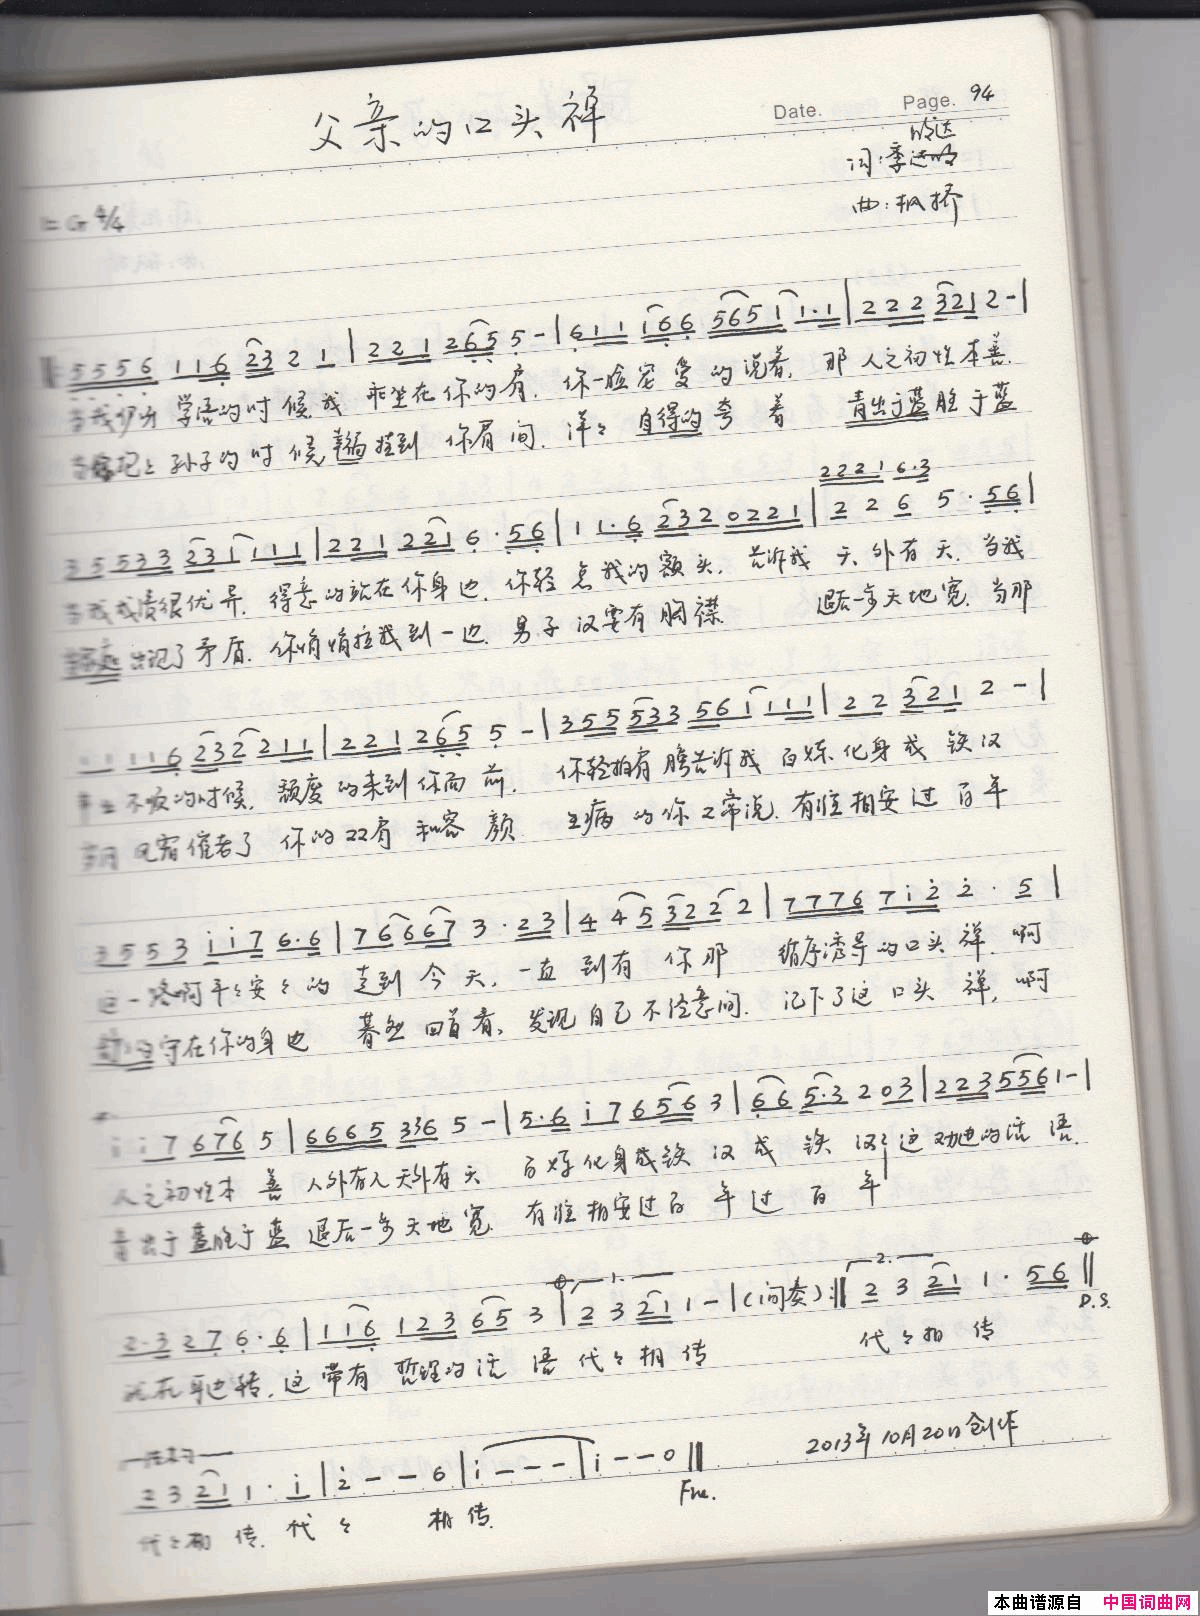 Date. Page. 94
父亲的口头禅
词:季
曲:枫桥
1=G 4/4
5556 116 23 2 1 | 221 265 5 - | 611 166 5651 1·1 | 222 321 2 - |
当我 学语的时候,我 乖坐在你的肩, 你一脸 爱的说着, 那 人之初性本善.
孙子的时候,幸福挂到 你眉间. 洋々自得的夸着 青出于蓝胜于蓝
2221 6·3
35533 231 111 | 221 221 6·56 | 11·6 232 0221 | 2 2 6 5·56 |
当我成绩很优异, 得意的站在你身边, 你轻点我的额头, 告诉我 天外有天, 当我
出现了矛盾, 你悄悄拉我到一边, 男子汉要有胸襟 退后一步天地宽, 当那
1116 232 211 | 221 265 5 - | 355 533 561 111 | 22 321 2 - |
的时候, 颓废的来到你面前, 你轻拍肩膀告诉我 百炼化身成铁汉
风霜催老了 你的双肩和容颜 生病的你又常说, 有谁相安过百年
3553 i i 7 6·6 | 76667 3·23 | 4 45 322 2 | 7776 7 i 2 2·5 |
这一路啊平々安々的 走到今天, 一直到有 你那 循序诱导的口头禅, 啊
守在你的身边 蓦然回首看, 发现自己不经意间, 记下了这口头禅, 啊
i i 7 676 5 | 6665 336 5 - | 5·6 i 7 656 3 | 66 5·3 2 03 | 223 5561 - |
人之初性本善 人外有人天外有天 百炼化身成铁汉成铁汉 这 的话语.
青出于蓝胜于蓝 退后一步天地宽 有谁相安过百年过百年
1. 2.
2·3 27 6·6 | 116 123 65 3 | 2 3 21 1 - | (间奏) :‖ 2 3 21 1·56 ‖
D.S.
耳边转, 这带有哲理的话语 代々相传 代々相传
2 3 21 1·i | 2 - - 6 | i - - - | i - - 0 ‖
Fine.
2013年10月20日创作
代々相传, 代々 相传.
本曲谱源自 中国词曲网